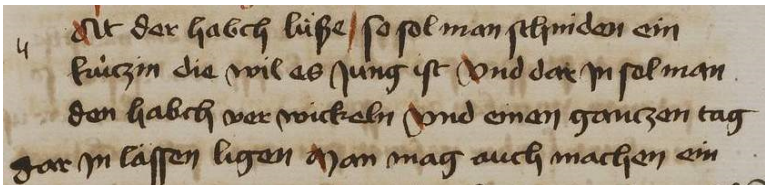 4 Ist der habch lüsße / so sol man schniden ein
küczin die wil es Jung ist Vnd dar Jn sol man
den habch ver wickeln Vnd einen ganczen tag
dar Jn lässen ligen Man mag auch machen ein